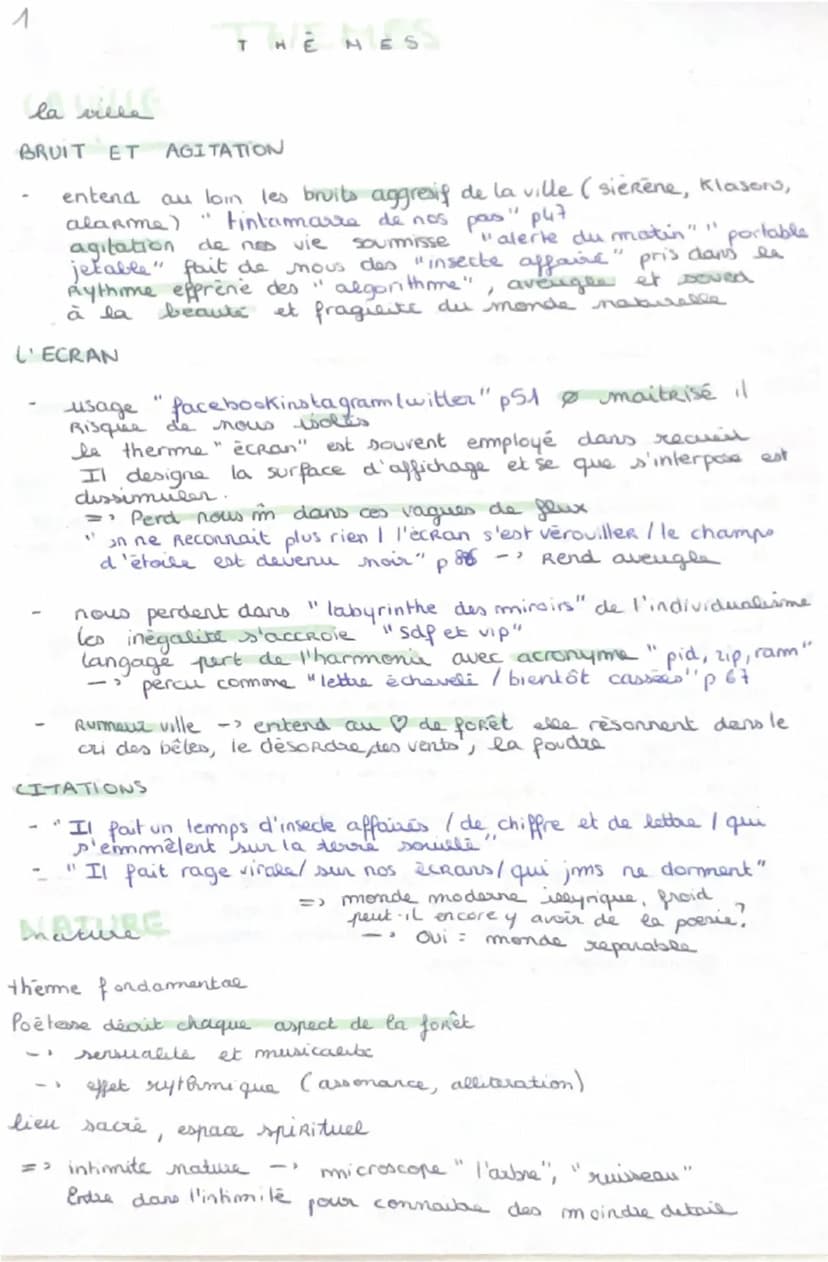 1
THÈMES
la ville
BRUIT ET AGITATION
- entend au loin les bruits aggresif de la ville (sierène, Klasons,
alarme) "tintamarre de nos pas" p47
agitation de nos vie soumisse "alerte du matin" "portable
jetable" fait de nous des "insecte affairé" pris dans le
Rythme effréné des "algorithme", aveugle et sourd
à la beauté et fragilité du monde naturelle
L'ECRAN
- usage "facebookinstagramtwitter" p51 ø maitrisé il
Risque de nous isolés
le therme "écran" est souvent employé dans recueil
Il designe la surface d'affichage et se que s'interpose est
dissimuler.
=> Perd nous m̂ dans ces vagues de flux
"on ne Reconnait plus rien / l'écran s'est vérouiller / le champs
d'étoile est devenu noir" p 86 -> Rend aveugle
- nous perdent dans "labyrinthe des miroirs" de l'individualisme
les inégalité s'accroie "sdf et vip"
langage pert de l'harmonie avec acronyme "pid, zip, ram"
-> percu comme "lettre échevelé / bientôt cassées" p 67
- Rumeur ville -> entend au ♡ de forêt elle résonnent dans le
cri des bêtes, le désordre des vents, la foudre
CITATIONS
- "Il fait un temps d'insecte affairés / de chiffre et de lettre / qui
s'emmêlent sur la terre souillé"
- "Il fait rage virale / sur nos écrans / qui jms ne dorment"
=> monde moderne illyrique, froid
peut-il encore y avoir de la poesie?
-> Oui = monde reparable
nature
thème fondamental
Poètesse décrit chaque aspect de la forêt
-> sensualité et musicalité
-> effet rythmique (assonance, alliteration)
lieu sacré, espace spirituel
=> intimite nature -> microscope "l'arbre", "ruisseau"
Entre dans l'intimité pour connaitre des moindre detail